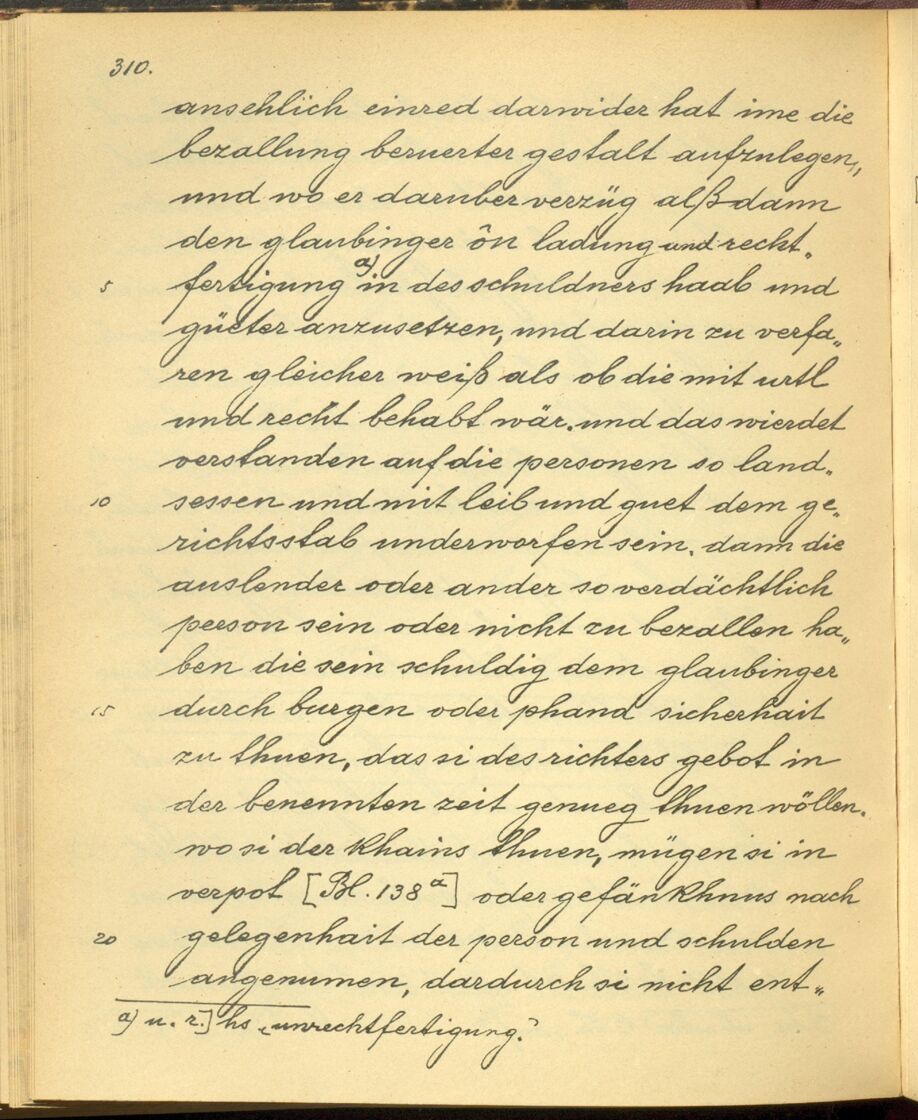 310.
ansehlich einred darwider hat ime die
bezallung beruerter gestalt aufzulegen,,
und wo er daruber verzüg alß dann
den glaubinger ôn ladung und recht„
5 fertigung a) in des schuldners haab und
güeter anzusetzen, und darin zu verfa„
ren gleicher weiß als ob die mit urtl
und recht behabt wär. und das wierdet
verstanden auf die personen so land„
10 sessen und mit leib und guet dem ge„
richtsstab underworfen sein. dann die
auslender oder ander so verdächtlich
person sein oder nicht zu bezallen ha„
ben die sein schuldig dem glaubinger
15 durch burgen oder phand sicherhait
zu thuen, das si des richters gebot in
der benennten zeit genueg thuen wöllen.
wo si der khains thuen, mügen si in
verpot [Bl. 138 a] oder gefänkhnus nach
20 gelegenhait der person und schulden
angenumen, dardurch si nicht ent„
a) u. r.] hs „unrechtfertigung.“